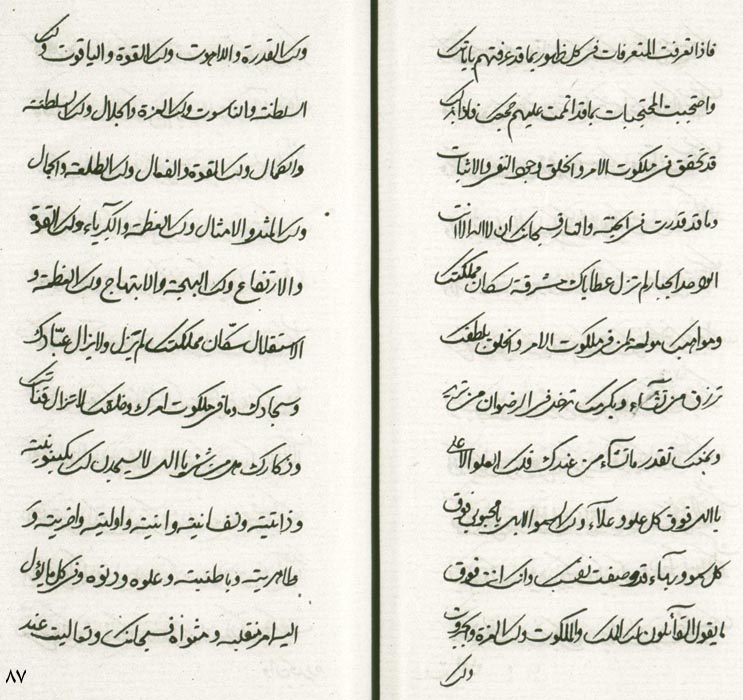 فاذا تعرفت المتعرفات فى كل ظهور بما قد عرفتهم باياتك
واحتجبت المحتجبات بما قد اتممت عليهم حججك فاذا بذلك
قد تحقق فى ملكوت الامر والخلق وجود النفى والاثبات
وما قد قدرت فى الجنة والنار فسبحانك ان لا اله الا انت
الواحد الجبار لم تزل عطاياك مشرقة لسكان مملكتك
ومواهبك لمن فى ملكوت الامر والخلق بلطفك
ترزق من تشآء وبكرمك تدخل فى الرضوان من تريد
وبمنك تقدر ما تشآء من عندك فلك العلو الاعلى
يا الهى فوق كل علو وعلآء ولك السمو الابهى يا محبوبى فوق
كل سمو وبهآء قد وصفت نفسك وانك انت فوق
ما يقول القآئلون لك الملك والملكوت ولك العزة والجبروت
ولك
ولك القدرة واللاهوت ولك القوة والياقوت ولك
السلطنة والناسوت ولك العزة والجلال ولك الطلعة
والكمال ولك القوة والفعال ولك الطلعة والجمال
ولك المثل والامثال ولك العظمة والكبرياء ولك القوة
والارتفاع ولك البهجة والابتهاج ولك العظمة و
الاستقلال سكّان مملكتك لم يزل ولا يزال عبّادك
وسجادك وما فى ملكوت امرك وخلقك لا تزال قنّاتك
وذكارك هل من شئ يا الهى لا يسجدن لك بكينونيته
وذاتيته ونفسانيته وانيته واوليته واخريته و
ظاهريته وباطنيته وعلوه ودنوه وفى كل ما يؤل
اليه امر منقلبه ومثواه فسبحانك وتعاليت عند
٨٧